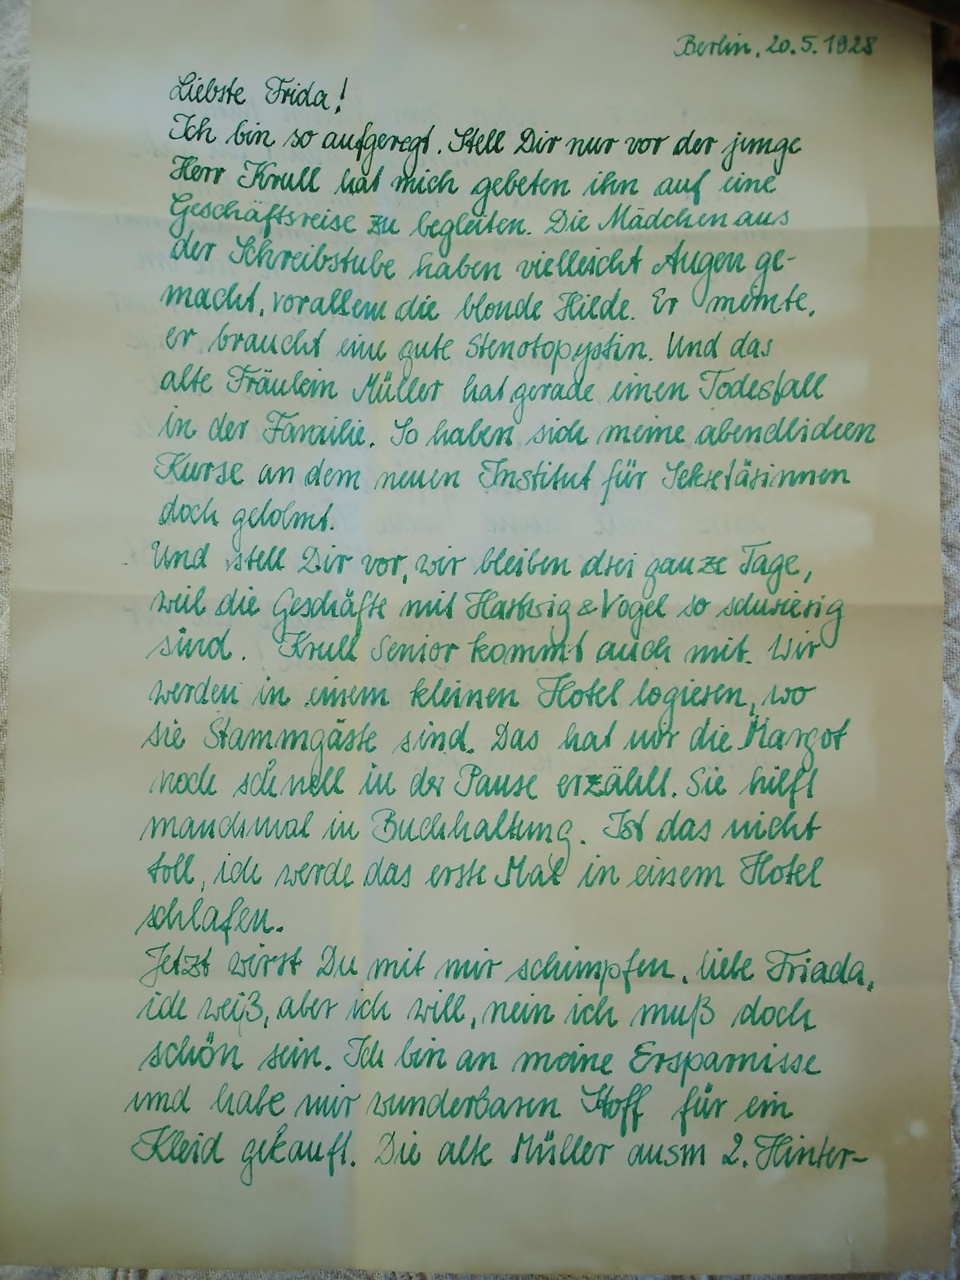 Berlin, 20.5.1928
Liebste Frida!
Ich bin so aufgeregt. Stell Dir nur vor der junge
Herr Krull hat mich gebeten ihn auf eine
Geschäftsreise zu begleiten. Die Mädchen aus
der Schreibstube haben vielleicht Augen ge-
macht, vorallem die blonde Hilde. Er meinte,
er braucht eine gute Stenotopystin. Und das
alte Fräulein Müller hat gerade einen Todesfall
in der Familie. So haben sich meine abendlichen
Kurse an dem neuen Institut für Sekretärinnen
doch gelohnt.
Und stell Dir vor, wir bleiben drei ganze Tage,
weil die Geschäfte mit Hartwig & Vogel so schwierig
sind. Krull Senior kommt auch mit. Wir
werden in einem kleinen Hotel logieren, wo
sie Stammgäste sind. Das hat mir die Margot
noch schnell in der Pause erzählt. Sie hilft
manchmal in Buchhaltung. Ist das nicht
toll, ich werde das erste Mal in einem Hotel
schlafen.
Jetzt wirst Du mit mir schimpfen, liebe Friada,
ich weiß, aber ich will, nein ich muß doch
schön sein. Ich bin an meine Ersparnisse
und habe mir wunderbaren Stoff für ein
Kleid gekauft. Die alte Müller ausm 2. Hinter-